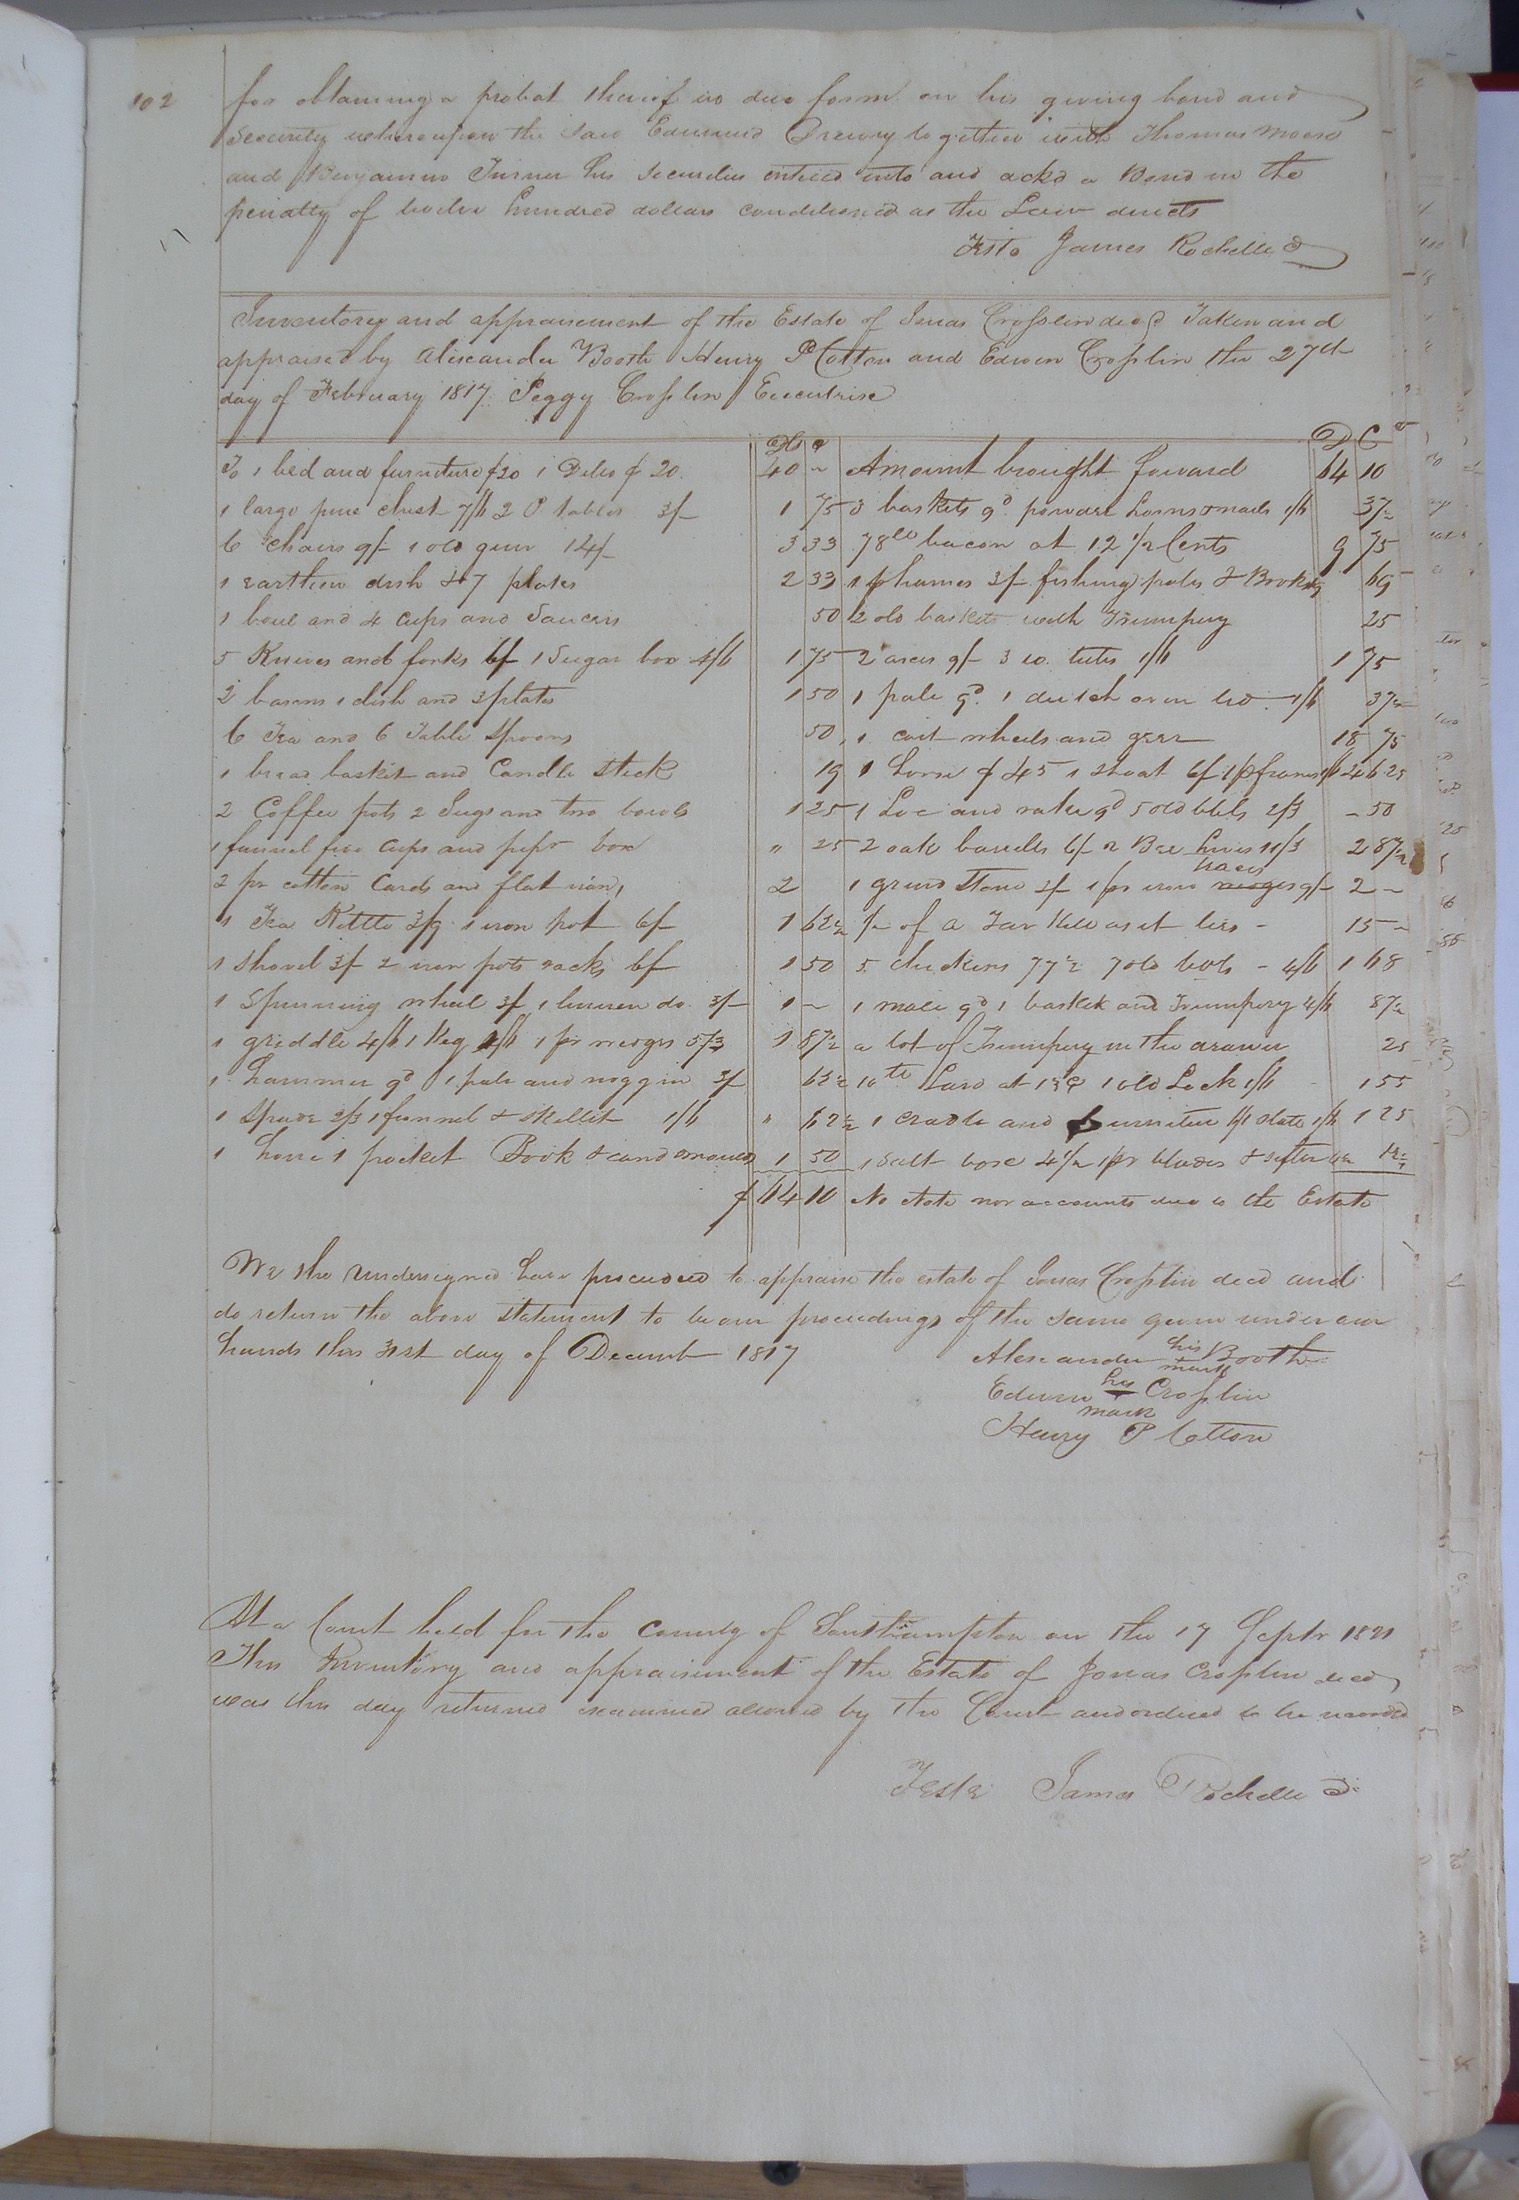 102
for obtaining a probat thereof in due form on his giving bond and
Security whereupon the said Edmund Drewry together with Thomas Moore
and Benjamin Turner his securities entered into and ackd a Bond in the
penalty of twelve hundred dollars conditioned as the Law directs
Teste James Rochelle
Inventory and appraisement of the Estate of Jonas Crosslin decd Taken and
appraised by Alexander Booth Henry P Cotton and Edwin Crosslin the 27th
day of February 1817 Peggy Crosslin Executrix
To 1 bed and furniture $20 1 Ditto $20 40 ~
1 large pine chest 7/6 2 P tables 3/- 1 75
6 chairs 9/- 1 old gun 14/- 3 33
1 earthen dish & 7 plates 2 33
1 bowl and 4 cups and Saucers 50
5 Knives and forks 6/- 1 Sugar box 4/6 1 75
2 basons 1 dish and 3 plates 1 50
6 Tea and 6 Table Spoons 50
1 bread basket and Candle stick 19
2 Coffee pots 2 Jugs and two bowls 1 25
1 funnel five cups and box " 25
2 pr cotton Cards and flat irons 2
1 Tea Kettle 3/9 1 iron pot 6/- 1 62½
1 shovel 3/- 2 iron pots racks 6/- 1 50
1 Spinning wheel 3/- 1 linnen do 3/- 1 ~
1 griddle 4/6 1 Keg 1/6 1 pr wedges 5/3 1 87½
1 hammer 9d 1 pale and noggin 3/- 62½
1 Spade 2/3 1 funnel & skillet 1/6 " 62½
1 1 pocket Book & 1 50
$ 64 10
D C
Amount brought forward 64 10
3 baskets 9d powder horns & nails 1/6 37½
78lb bacon at 12 1/2 Cents 9 75
1 p hames 3/- fishing poles & 69
2 old baskets with Trumpery 25
2 axes 9/- 3 1/6 1 75
1 pale 9d 1 dutch oven 1/6 37½
1 cart wheels and geer 18 75
1 horse $45 1 shoat 6/- 46 25
1 hoe and rake 9d 5 old bbls 2/3 - 50
2 oak barrells 6/- 2 Bee hives 11/3 2 87½
traces
1 grind Stone 3/- 1 pr iron 9/- 2 ~
1/2 of a Tar Kiln as it lies - 15 ~
5 chickens 77½ 7 old - 4/6 1 68
1 9d 1 basket and Trumpery 4/6 87½
a lot of Trumpery in the drawer 25
10 lb Lard at 1 old Lock 1/6 1 55
1 cradle and furniture 6/- slate 1/6 1 25
1 Salt box 4½ 1 pr blades & sifter
No Note nor accounts due to the Estate
We the undersigned have proceeded to appraise the estate of Jonas Crosslin decd and
do return the above statement to be our proceedings of the same given under our
hands this 31st day of Decemb 1817
Alexander his mark Booth
Edwin his mark Crosslin
Henry P Cotton
At a Court held for the County of Southampton on the 17 Septr 1821
This Inventory and appraisement of the Estate of Jonas Crosslin decd
was this day returned examined allowed by the Court and ordered to be recorded
Teste James Rochelle